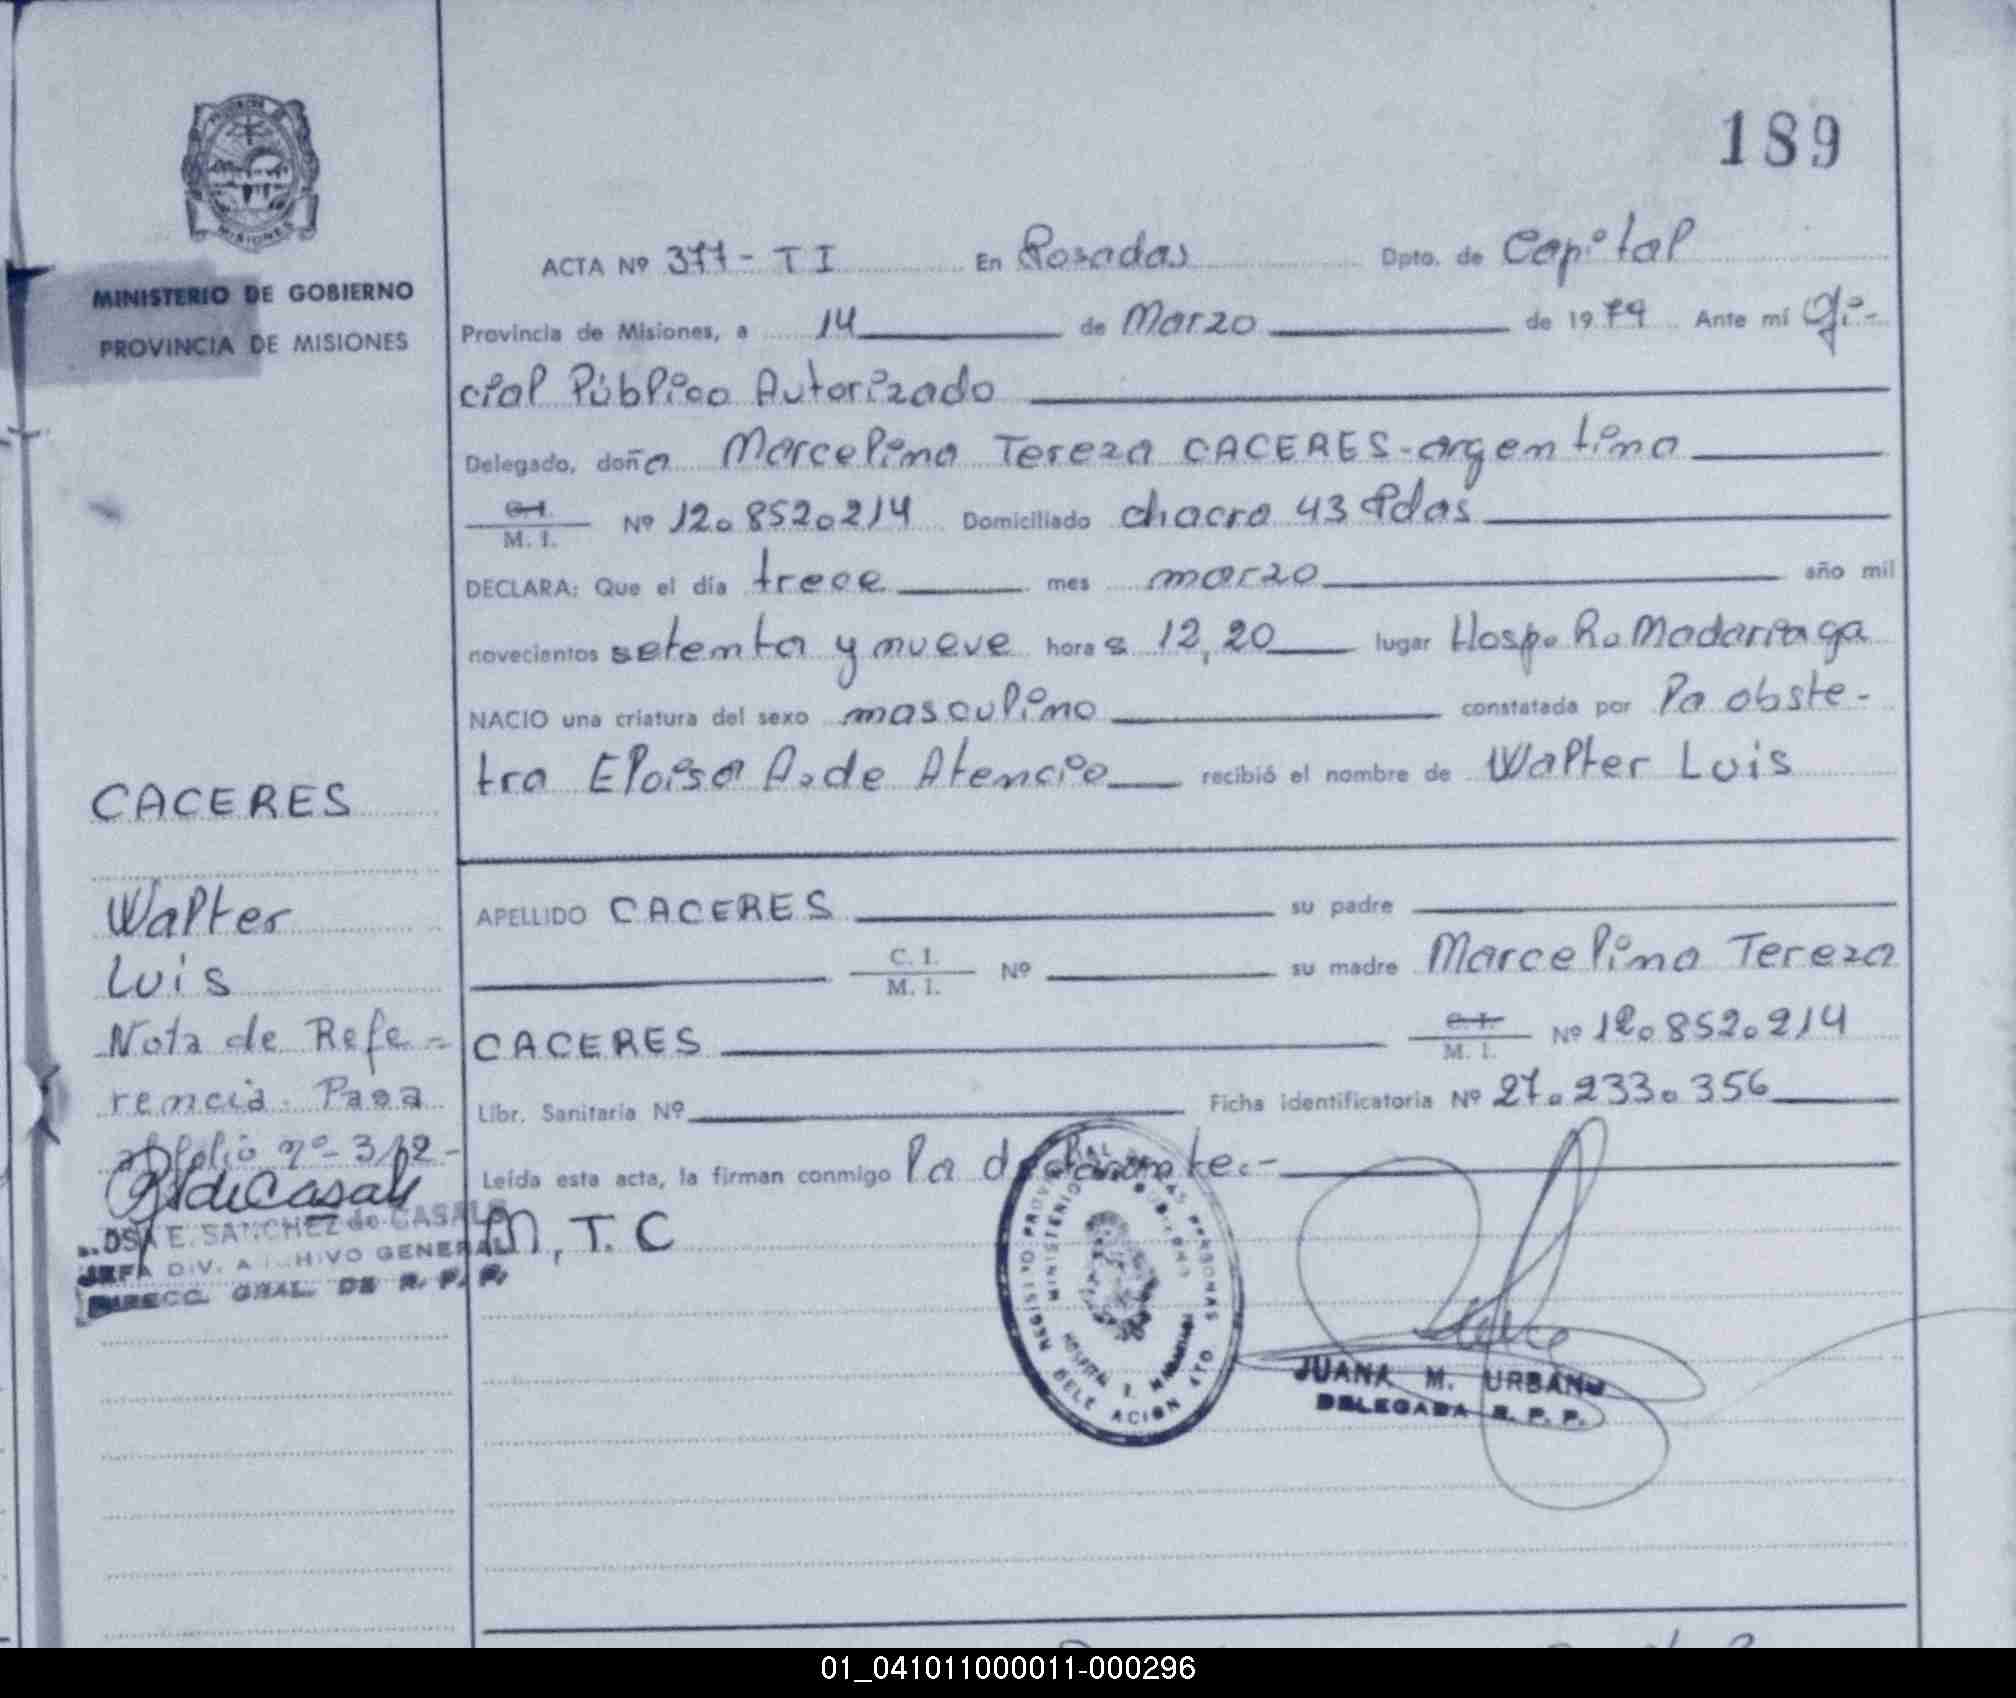 189
MINISTERIO DE GOBIERNO
PROVINCIA DE MISIONES
ACTA Nº 377 - T I En Posadas Dpto. de Capital
Provincia de Misiones, a 14 de Marzo de 1979 Ante mí Ofi-
cial Público Autorizado
Delegado, doña Marcelina Tereza CACERES - argentina
C.I. M. I. Nº 12.852.214 Domiciliado chacra 43 Pdas
DECLARA: Que el día trece mes marzo año mil
novecientos setenta y nueve horas 12,20 lugar Hosp. R. Madariaga
NACIO una criatura del sexo masculino constatada por la obste-
tra Eloisa A. de Atencio recibió el nombre de Walter Luis
APELLIDO CACERES su padre
C. I. M. I. Nº su madre Marcelina Tereza
CACERES C.I. M. I. Nº 12.852.214
Libr. Sanitaria Nº Ficha identificatoria Nº 27.233.356
Leída esta acta, la firman conmigo la declarante.-
M, T. C
CACERES
Walter
Luis
Nota de Refe-
rencia Pasa
al folio nº 312-
E. SANCHEZ de CASALS
JEFA DIV. ARCHIVO GENERAL
DIRECC. GRAL. DE R. P. P.
JUANA M. URBANO
DELEGADA R. P. P.
01_041011000011-000296